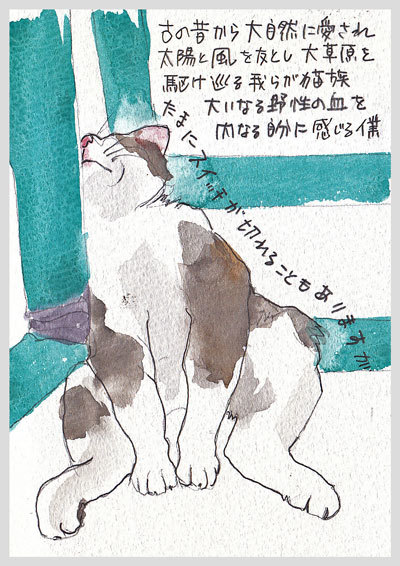 古の昔から大自然に愛され
太陽と風を友とし 大草原を
駆け巡る我らが猫族
大いなる野性の血を
内なる自分に感じる僕
たまにスイッチが切れることもありますが